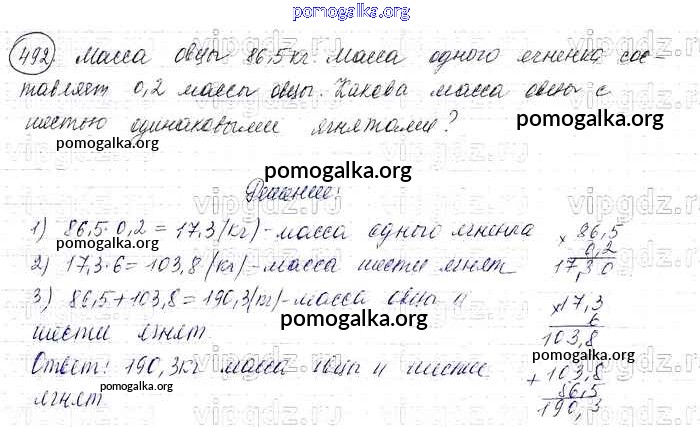 pomogalka.org
492 Масса овцы 86,5 кг. Масса одного ягненка сос-
тавляет 0,2 массы овцы. Какова масса овцы с
шестью одинаковыми ягнятами?
pomogalka.org
pomogalka.org
pomogalka.org
Решение:
vipgdz.ru
vipgdz.ru
1) 86,5·0,2=17,3(кг)-масса одного ягненка
pomogalka.org
2) 17,3·6=103,8(кг)-масса шести ягнят
3) 86,5+103,8=190,3(кг)-масса овцы и
шести ягнят
pomogalka.org
Ответ: 190,3кг масса овцы и шести
pomogalka.org
ягнят
×86,5
0,2
17,30
×17,3
6
103,8
pomogalka.org
+103,8
86,5
190,3
vipgdz.ru